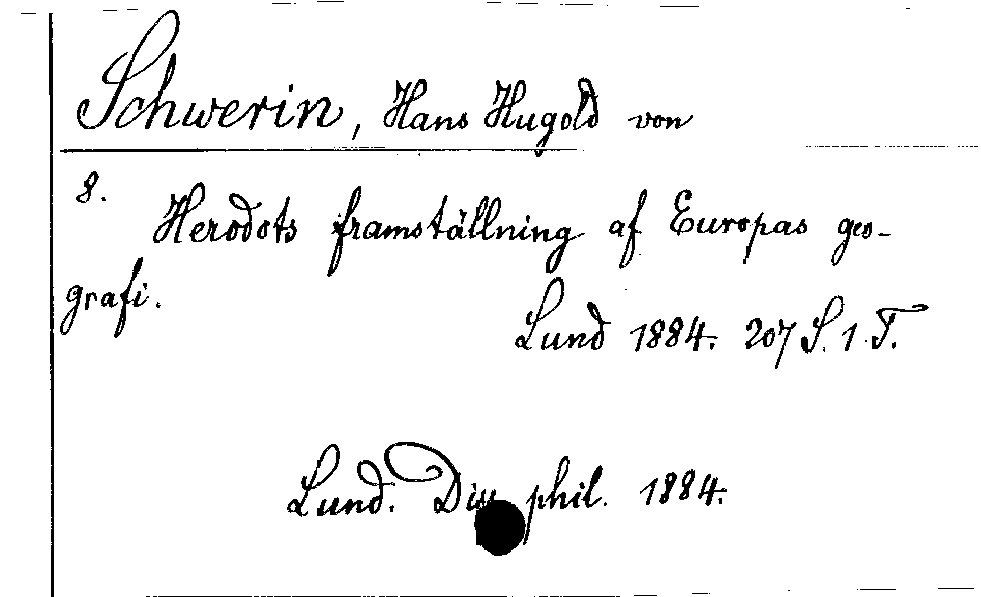 Schwerin, Hans Hugold von
8.
Herodots framställning af Europas geo-
grafi.
Lund 1884. 207 S. 1 T.
Lund. Diss phil. 1884.